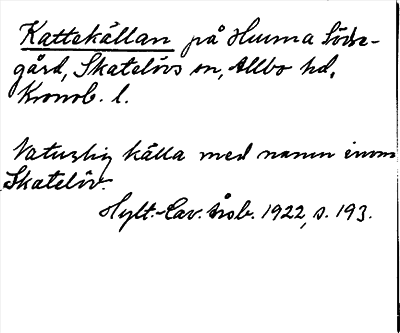 Kattekällan på Hunna Söder-
gård, Skatelövs sn, Allbo hd,
Kronob. l.
Naturlig källa med namn inom
Skatelöv.
Hylt.-Cav. årsb. 1922, s. 193.